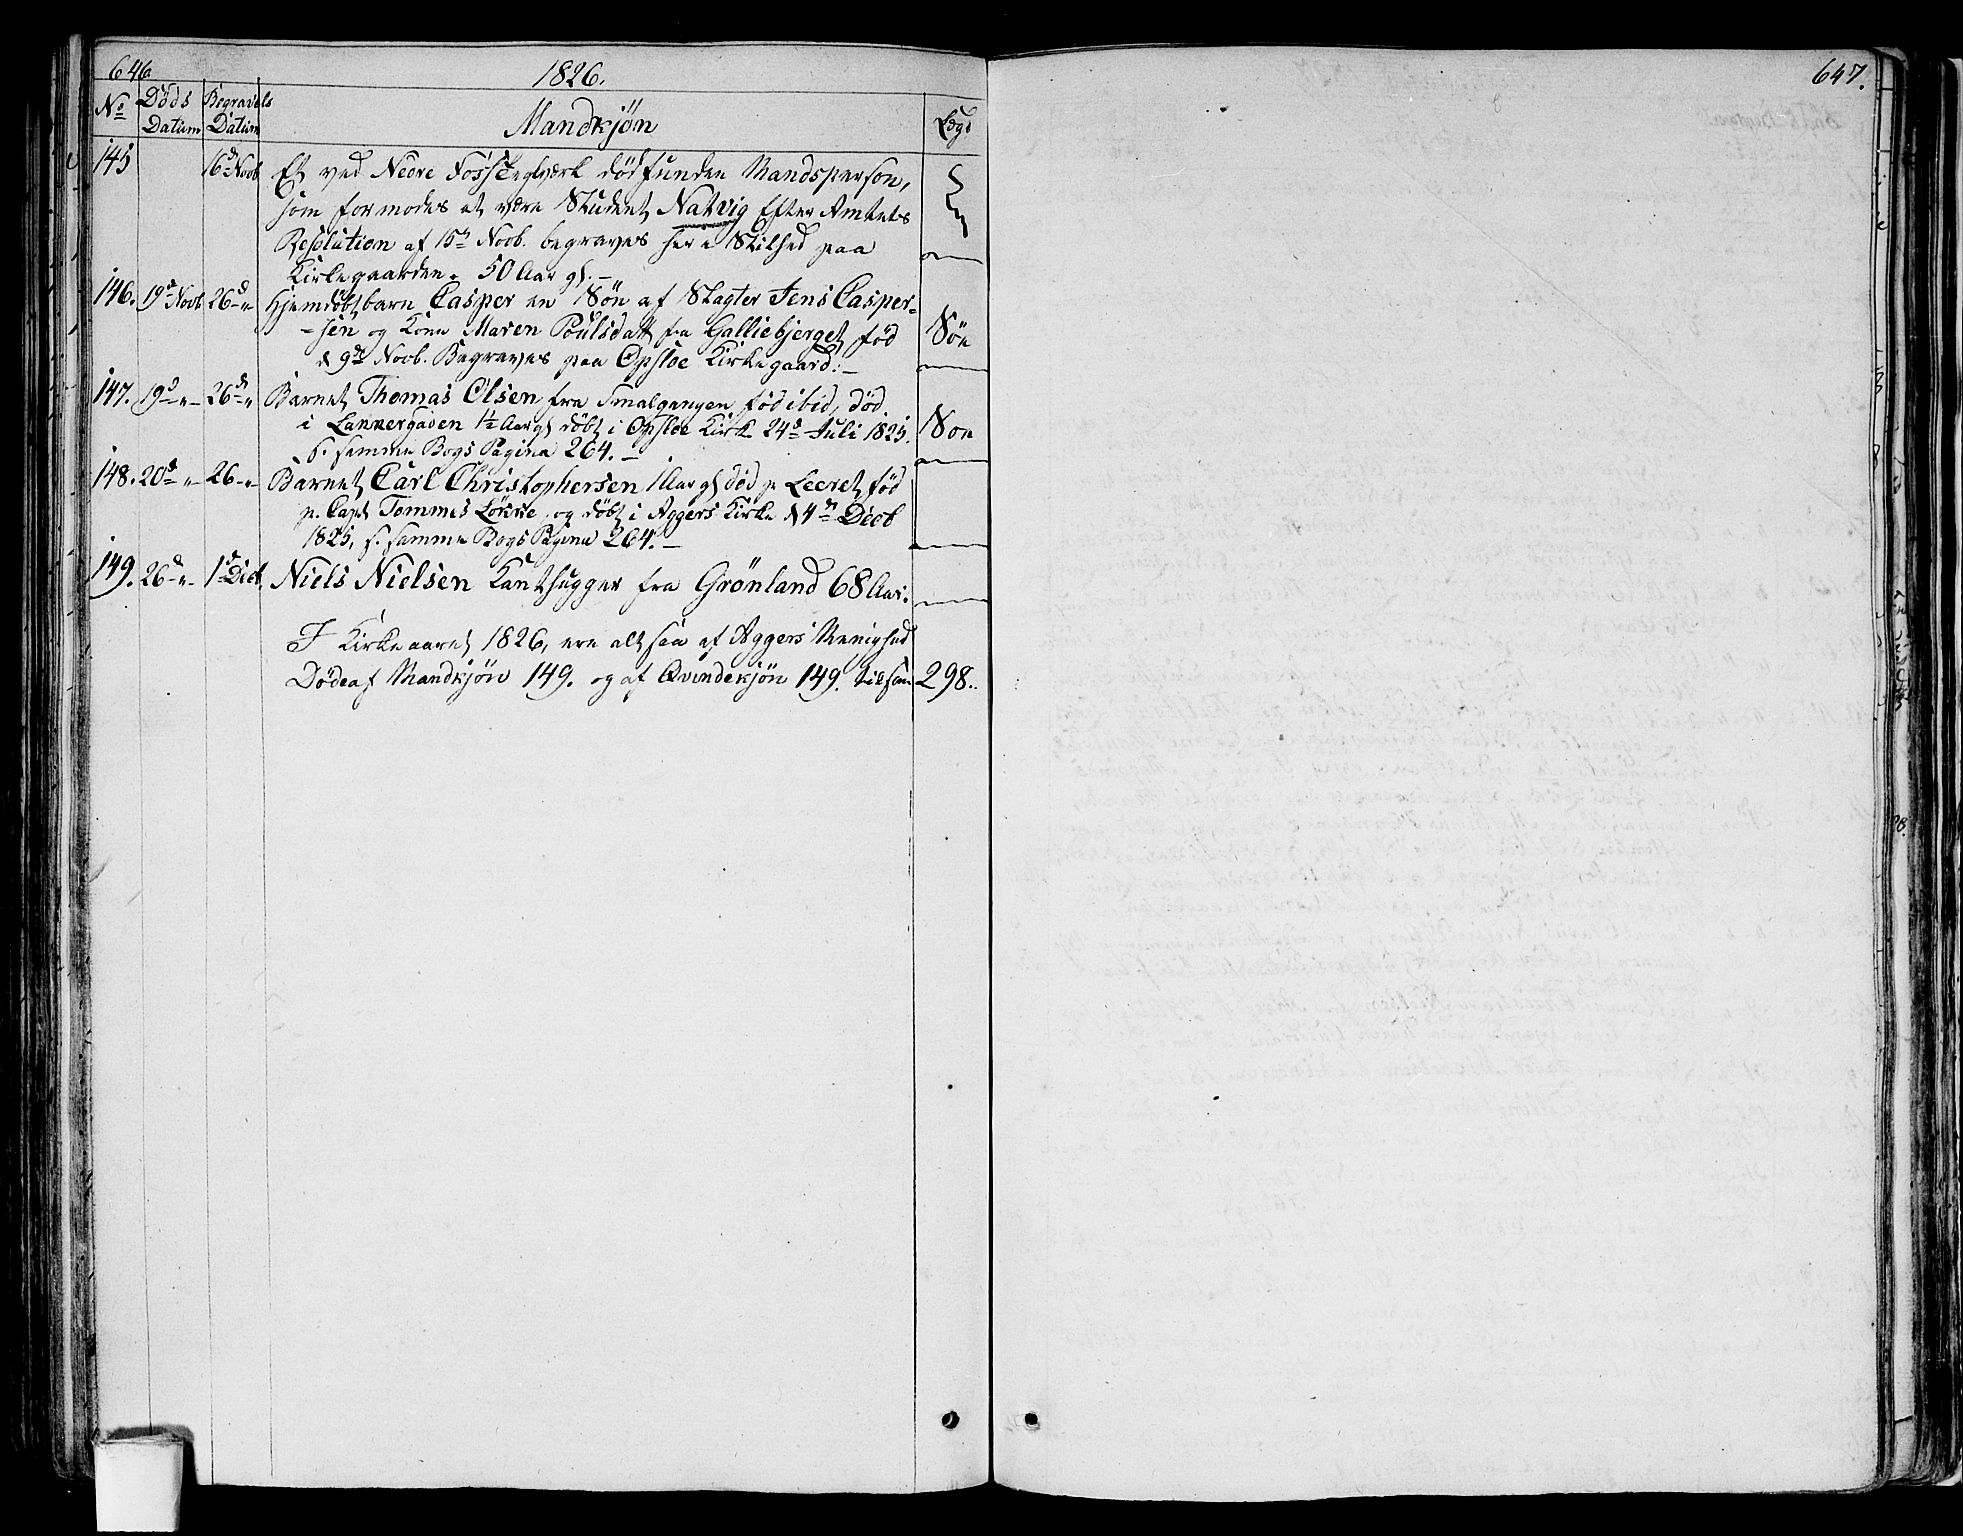 646
1826.
647.
No Döds Datum Begravels Datum Mandkjön Lægd
145 16d Novb Et ved Nedre Foss Teglværk dödfunden Mandsperson,
som formodes at være Student Natvig Efter Amtets
Resolution af 15de Novb. begraves her i Stilhed paa
Kirkegaarden. 50 Aar gl. –
146. 19d Novb 26d –"– Hjemdöbt barn Casper en Sön af Slagter Jens Casper-
-sen og Kone Maren Poulsdatt fra Galliebjerget föd Sön
d 9de Novb. Begraves paa Opsloe Kirkegaard. –
147. 19d –"– 26de –"– Barnet Thomas Olsen fra Smalgangen föd ibid, död
i Lannergaden 1½ Aar gl döbt i Opsloe Kirk 24d Juli 1825. Son
s. samme Bogs Pagina 264. –
148. 20d –"– 26 –"– Barnet Carl Christophersen 1 Aar gl död p Leeret föd
p. Capt Tommes Lökke og döbt i Aggers Kirke d 4de Decb
1825, s. samme Bogs Pagina 264. –
149. 26d –"– 1d Decb. Niels Nielsen Kanthugger fra Grönland 68 Aar.
I Kirkeaaret 1826, ere altsaa af Aggers Menighed
Döde af Mandkjön 149. og af Qvindekjön 149. tilsam 298.